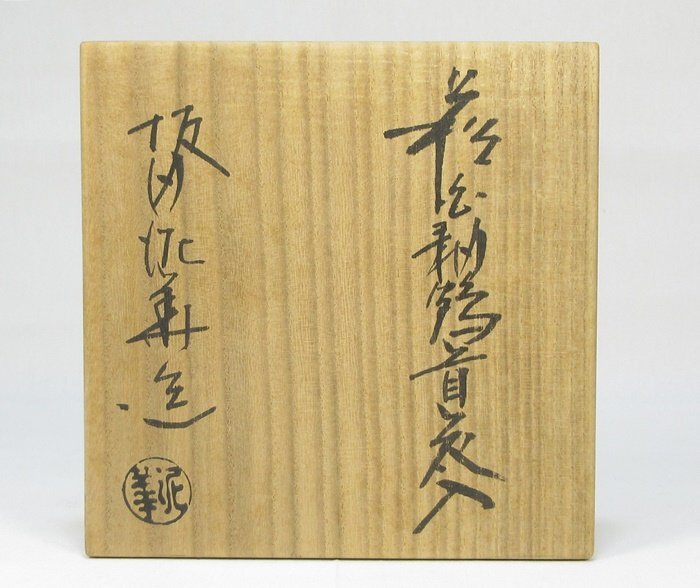 萩白釉鶴首花入
坂田泥華造
泥華